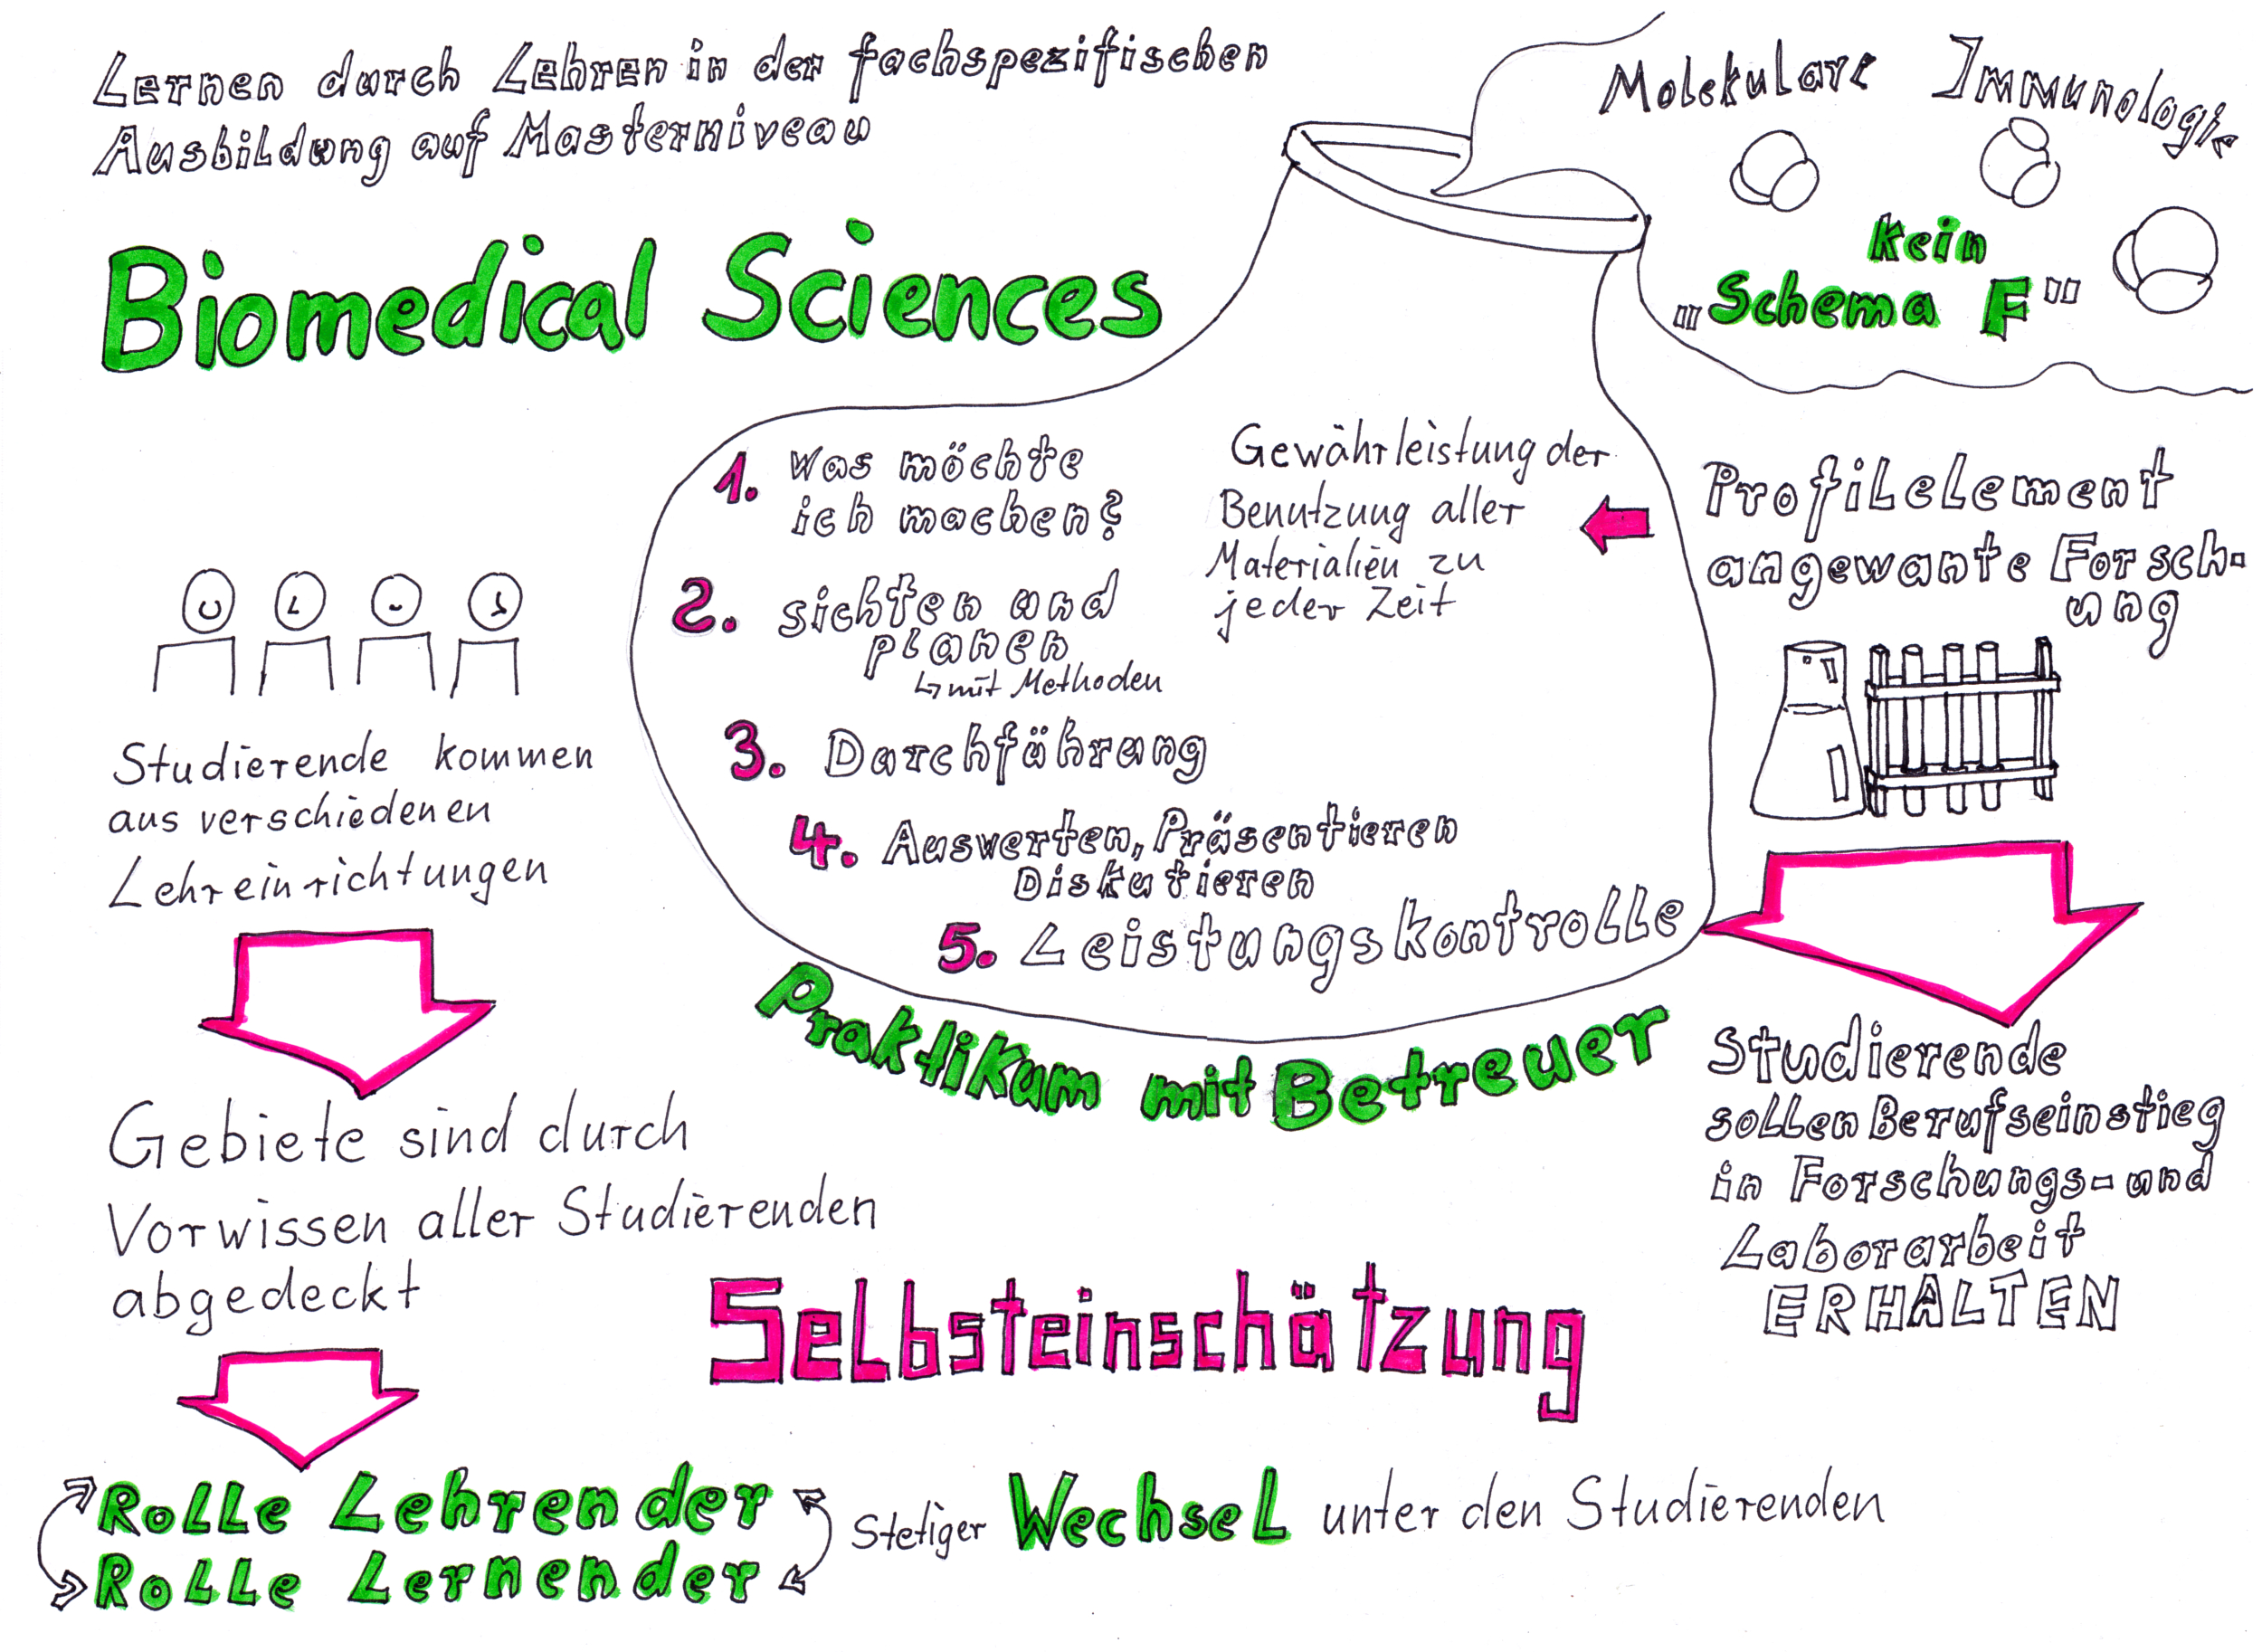 Lernen durch Lehren in der fachspezifischen
Ausbildung auf Masterniveau
Biomedical Sciences
Molekulare Immunologie
kein
„Schema F"
1. Was möchte
ich machen?
2. sichten und
planen
↳ mit Methoden
3. Durchführung
4. Auswerten, Präsentieren
Diskutieren
5. Leistungskontrolle
Gewährleistung der
Benutzung aller
Materialien zu
jeder Zeit
Praktikum mit Betreuer
Profilelement
angewante Forsch-
ung
Studierende
sollen Berufseinstieg
in Forschungs- und
Laborarbeit
ERHALTEN
Studierende kommen
aus verschiedenen
Lehreinrichtungen
Gebiete sind durch
Vorwissen aller Studierenden
abgedeckt
Selbsteinschätzung
Rolle Lehrender
Rolle Lernender
Stetiger Wechsel unter den Studierenden